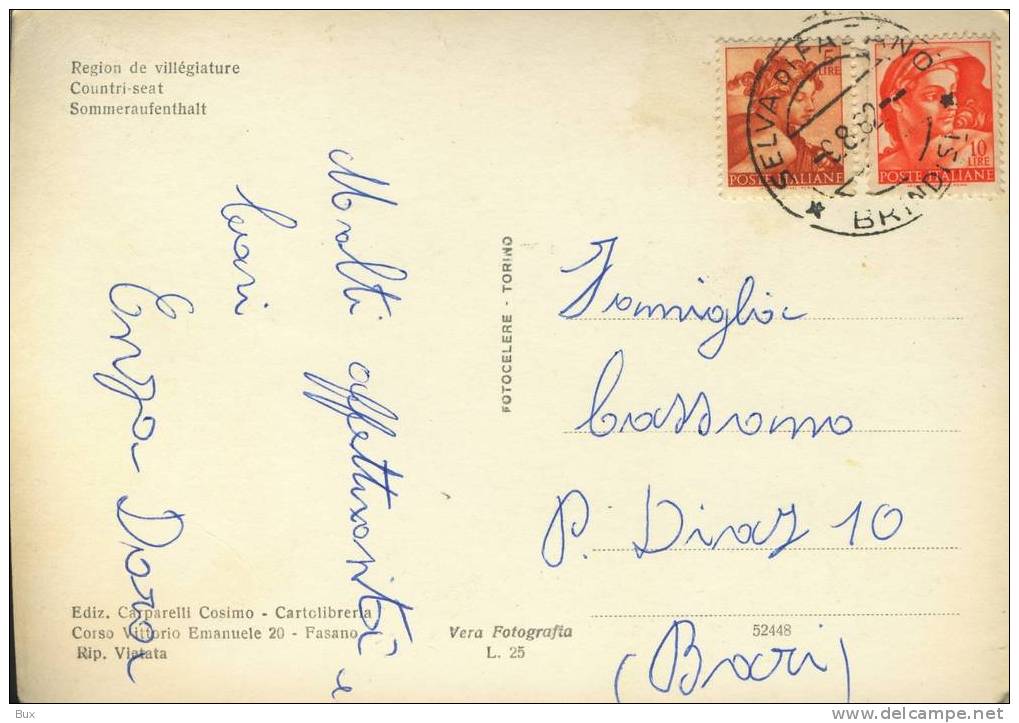 Region de villégiature
Countri-seat
Sommeraufenthalt
5
LIRE
POSTE ITALIANE
10
LIRE
POSTE ITALIANE
SELVA DI FASANO
BRINDISI
Molti affettuosità e
baci
Enza Dora
FOTOCELERE - TORINO
Famiglia
Cassano
P. Diaz 10
(Bari)
Ediz. Carparelli Cosimo - Cartolibreria
Corso Vittorio Emanuele 20 - Fasano
Rip. Vietata
Vera Fotografia
L. 25
52448
Bux
www.delcampe.net